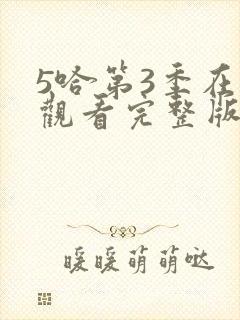 5哈第3季在
觀看完整版
暖暖萌萌哒